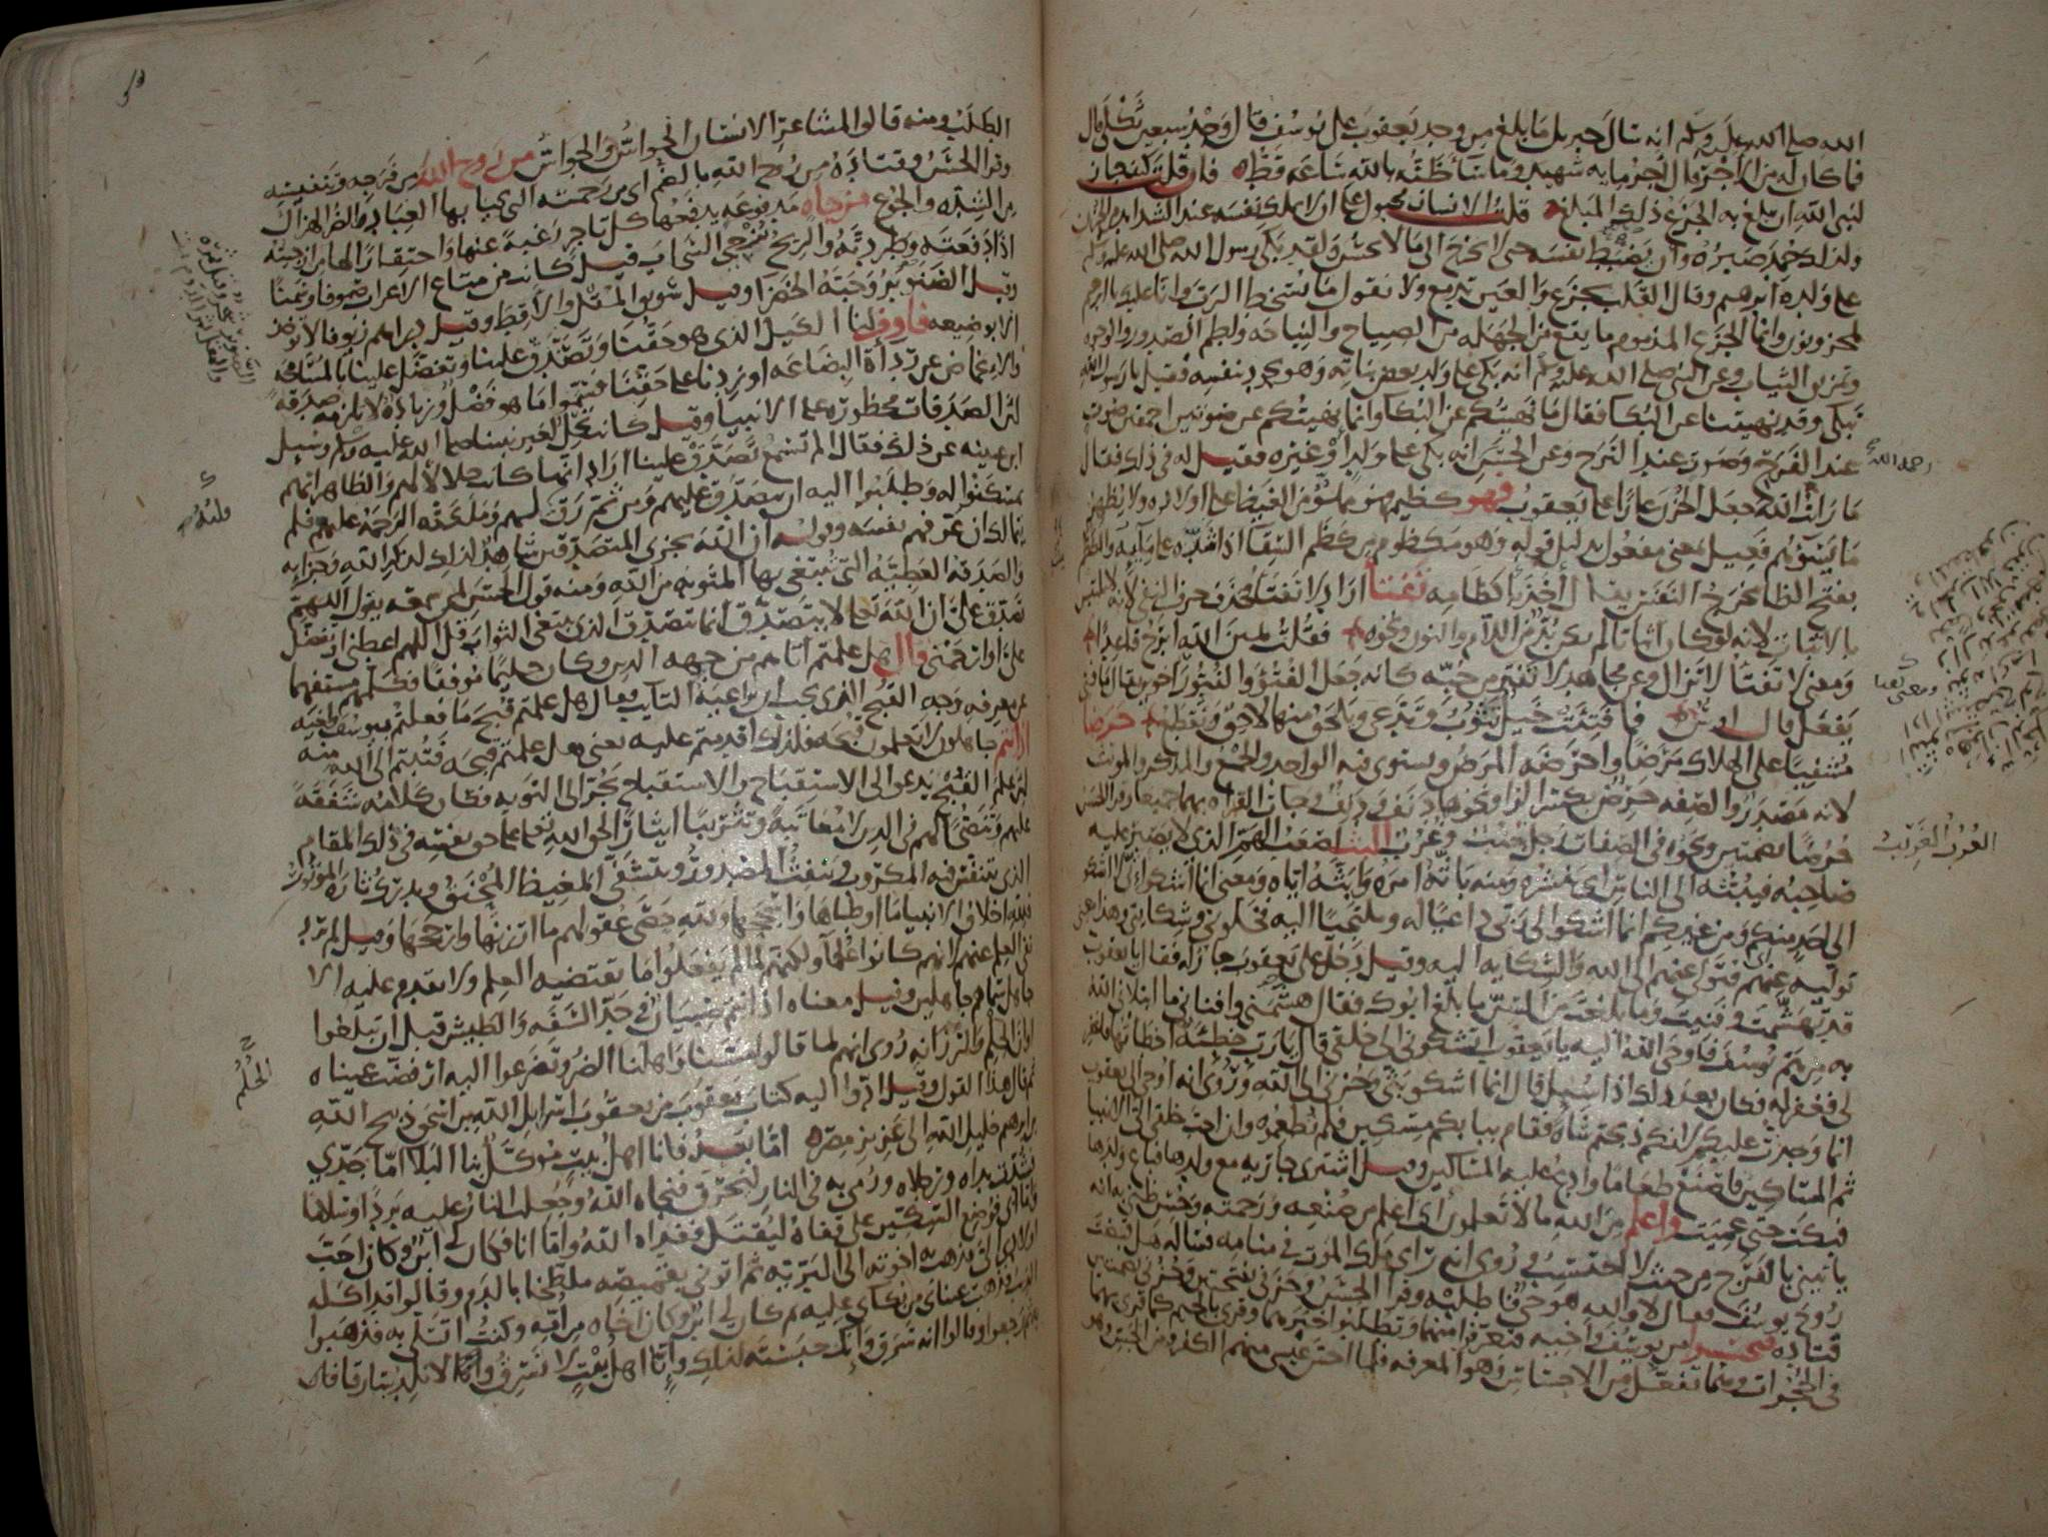 الله صلى الله عليه وسلم انه سال جبريل ما بلغ من وجد يعقوب على يوسف قال وجد سبعين ثكلى قال
فما كان له من الاجر قال اجر مايه شهيد وما ساء ظنه بالله ساعه قط فان قلت كيف جاز
لنبى الله ان يبلغ به الجزع ذلك المبلغ قلت الانسان مجبول على ان لا يملك نفسه عند الشدايد من الحزن
ولذلك حمد صبره وان يضبط نفسه حتى لا يخرج الى ما لا يحسن ولقد بكى رسول الله صلى الله عليه وسلم
على ولده ابرهيم وقال القلب يجزع والعين تدمع ولا نقول ما يسخط الرب وانا عليك يا ابرهيم
لمحزونون وانما الجزع المذموم ما يقع من الجهله من الصياح والنياحه ولطم الصدور والوجوه
وتمزيق الثياب وعن النبى صلى الله عليه وسلم انه بكى على ولد بعض بناته وهو يجود بنفسه فقيل يا رسول الله
تبكى وقد نهيتنا عن البكا فقال ما نهيتكم عن البكا وانما نهيتكم عن صوتين احمقين صوت
عند الفرح وصوت عند الترح وعن الحسن انه بكى على ولد او غيره فقيل له فى ذلك فقال
ما رايت الله جعل الحزن عارا على يعقوب فهو كظيم فهو مملو من الغيظ على اولاده ولا يظهر
ما يسوءهم فعيل بمعنى مفعول بدليل قوله وهو مكظوم من كظم السقا اذا شده على مليه والكظم
بفتح الظا مخرج النفس يقال اخذ باكظامه تفتا اراد لا تفتا فحذف حرف النفى لانه لا يلتبس
بالاثبات لانه لو كان اثباتا لم يكن بد من اللام والنون ونحوه فقلت يمين الله ابرح قاعدا
ومعنى لا تفتا لا تزال وعن مجاهد لا تفتر من حبه كانه جعل الفتو والفتور اخوين يقال ما فتى
يفعل قال اوس فما فتئت خيل تثوب وتدعى ويلحق منها لاحق وتقطع حرضا
مشفيا على الهلاك مرضا واحرضه المرض ويستوى فيه الواحد والجمع والمذكر والمونث
لانه مصدر والصفه حرض بكسر الرا ونحوهما دنف ودنف وجات القراه بهما جميعا وقرا الحسن
حرضا بضمتين ونحوه فى الصفات رجل جنب وغرب البث اصعب الهم الذى لا يصبر عليه
صاحبه فيبثه الى الناس اى ينشره ومنه باثه امره وابثه اياه ومعنى انما اشكو انى لا اشكو
الى احد منكم ومن غيركم انما اشكو الى ربى داعيا له وملتجيا اليه فخلونى وشكايتى وهذا معنى
توليه عنهم اى فتولى عنهم الى الله والشكايه اليه وقيل دخل على يعقوب جار له فقال يا يعقوب
قد تهشمت وفنيت وما بلغت من السن ما بلغ ابوك فقال هشمنى وافنانى ما ابتلانى الله
به من هم يوسف فاوحى الله اليه يا يعقوب اتشكونى الى خلقى قال يا رب خطيئه اخطاتها فاغفر
لى فغفر له فكان بعد ذلك اذا سئل قال انما اشكو بثى وحزنى الى الله وروى انه اوحى الى يعقوب
انما وجدت عليكم لانكم ذبحتم شاه فقام ببابكم مسكين فلم تطعموه وان احب خلقى الى الانبيا
ثم المساكين فاصنع طعاما وادع عليه المساكين وقيل اشترى جاريه مع ولدها فباع ولدها
فبكت حتى عميت واعلم من الله ما لا تعلمون اى اعلم من صنعه ورحمته وحسن ظنى به انه
ياتينى بالفرج من حيث لا احتسب وروى انه راى ملك الموت فى منامه فساله هل قبضت
روح يوسف فقال لا والله هو حى فاطلبه وقرا الحسن وحزنى بفتحتين وحزنى بضمتين
قتاده فتحسسوا من يوسف واخيه فتعرفوا منهما وتطلبوا خبرهما وقرى بالجيم كما قرى بهما
فى الحجرات وهما تفعل من الاحساس وهو المعرفه فلما احس عيسى منهم الكفر ومن الجس وهو
رحمه الله
الغرب الغريب
الطلب ومنه قالوا لمشاعر الانسان الحواس والجواس من روح الله من فرجه وتنفيسه
وقرا الحسن وقتاده من روح الله بالضم اى من رحمته التى يحيا بها العباد الضر الهزال
من الشده والجوع مزجاه مدفوعه يدفعها كل تاجر رغبه عنها واحتقارا لها من ازجيته
اذا دفعته وطردته والريح تزجى السحاب قيل كانت من متاع الاعراب صوفا وسمنا
وقيل الصنوبر وحبه الخضرا وقيل سويق المقل والاقط وقيل دراهم زيوفا لا توخذ
الا بوضيعه فاوف لنا الكيل الذى هو حقنا وتصدق علينا وتفضل علينا بالمسامحه
والاغماض عن رداة البضاعه او زدنا على حقنا فسموا ما هو فضل وزياده لا تلزمه صدقه
لان الصدقات محظوره على الانبيا وقيل كانت تحل لغير نبينا صلى الله عليه وسلم وسيل
ابن عيينه عن ذلك فقال الم تسمع وتصدق علينا اراد انها كانت حلالا لهم والظاهر انهم
تمسكنوا له وطلبوا اليه ان يتصدق عليهم ومن ثم رق لهم وملكته الرحمه عليهم فلم
يتمالك ان عرفهم نفسه وقوله ان الله يجزى المتصدقين شاهد لذلك لذكر الله وجزايه
والصدقه العطيه التى تبتغى بها المثوبه من الله ومنه قول الحسن لمن سمعه يقول اللهم
تصدق على ان الله تعالى لا يتصدق انما يتصدق الذى يبتغى الثواب قل اللهم اعطنى او تفضل
على او ارحمنى قال هل علمتم اتاهم من جهه الدين وكان حليما موفقا فكلمهم مستفهما
عن معرفه وجه القبح الذى يجب ان يراعيه التايب فقال هل علمتم قبح ما فعلتم بيوسف واخيه
اذ انتم جاهلون لا تعلمون قبحه فلذلك اقدمتم عليه يعنى هل علمتم قبحه فتبتم الى الله منه
لان علم القبح يدعو الى الاستقباح والاستقباح يجر الى التوبه فكان كلامه شفقه
عليهم وتنصحا لهم فى الدين لا معاتبه وتثريبا ايثارا لحق الله تعالى على حق نفسه فى ذلك المقام
الذى يتنفس فيه المكروب وينفث المصدور ويتشفى المغيظ المحنق ويدرك ثاره الموتور
فلله اخلاق الانبيا ما اوطاها واسجحها ولله حصى عقولهم ما ارزنها وارجحها وقيل لم يرد
نفى العلم عنهم لانهم كانوا علما ولكنهم لما لم يفعلوا ما يقتضيه العلم ولا يقدم عليه الا
جاهل سماهم جاهلين وقيل معناه اذ انتم صبيان فى حد السفه والطيش قبل ان تبلغوا
اوان الحلم والرزانه روى انهم لما قالوا مسنا واهلنا الضر وتضرعوا اليه ارفضت عيناه
ثم قال هذا القول وقيل ادوا اليه كتاب يعقوب من يعقوب اسرايل الله بن اسحق ذبيح الله
بن ابرهيم خليل الله الى عزيز مصر اما بعد فانا اهل بيت موكل بنا البلا اما جدى
فشدت يداه ورجلاه ورمى به فى النار ليحرق فنجاه الله وجعلت النار عليه بردا وسلاما
واما ابى فوضع السكين على قفاه ليقتل ففداه الله واما انا فكان لى ابن وكان احب
اولادى الى فذهب به اخوته الى البريه ثم اتونى بقميصه ملطخا بالدم وقالوا قد اكله
الذيب فذهبت عيناى من بكاى عليه ثم كان لى ابن وكان اخاه من امه وكنت اتسلى به فذهبوا
به ثم رجعوا وقالوا انه سرق وانك حبسته لذلك وانا اهل بيت لا نسرق ولا نلد سارقا فان
الحلم